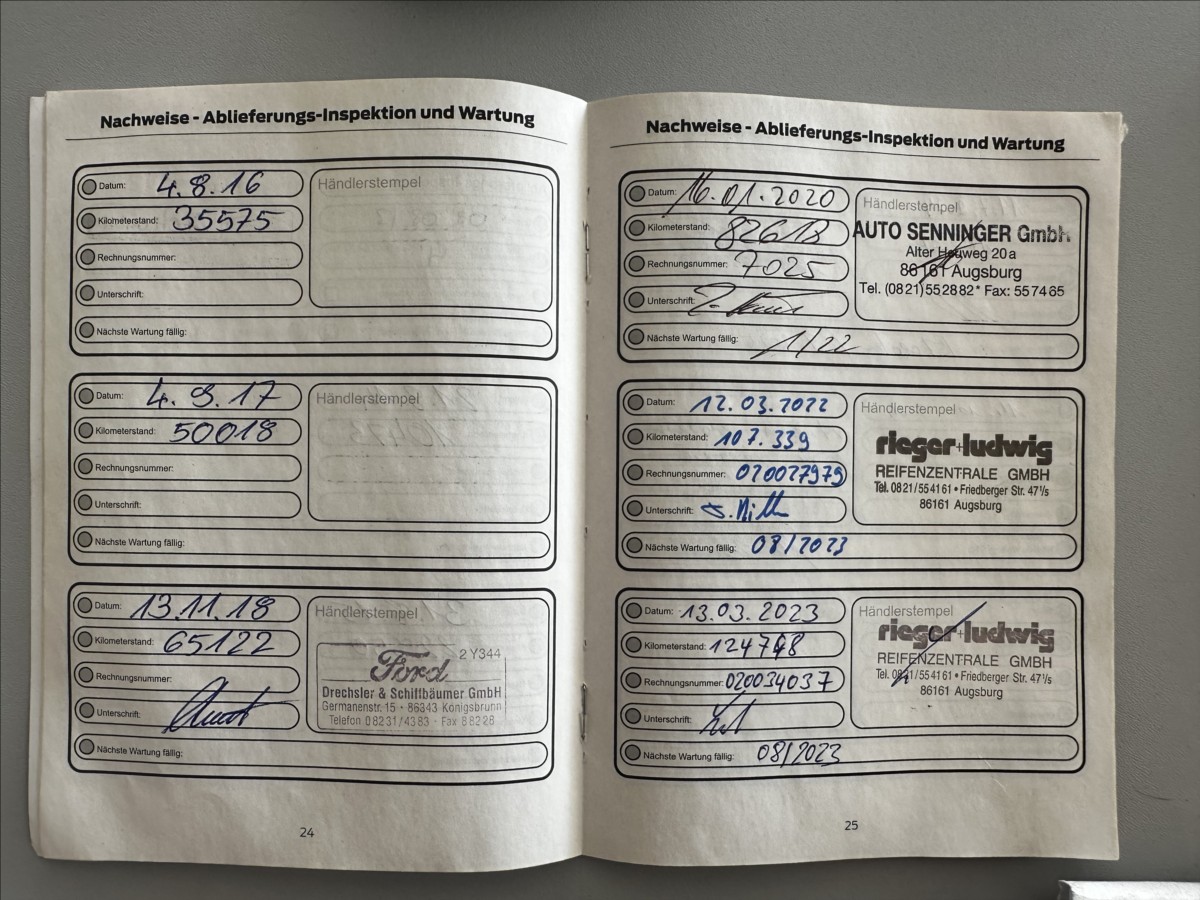 Nachweise - Ablieferungs-Inspektion und Wartung
Datum: 4.8.16
Kilometerstand: 35575
Rechnungsnummer:
Unterschrift:
Nächste Wartung fällig:
Händlerstempel
Datum: 4.9.17
Kilometerstand: 50018
Rechnungsnummer:
Unterschrift:
Nächste Wartung fällig:
Händlerstempel
Datum: 13.11.18
Kilometerstand: 65122
Rechnungsnummer:
Unterschrift:
Nächste Wartung fällig:
Händlerstempel
2 Y344
Ford
Drechsler & Schiffbäumer GmbH
Germanenstr. 15 · 86343 Königsbrunn
Telefon 08231/4383 · Fax 88228
24
Nachweise - Ablieferungs-Inspektion und Wartung
Datum: 16.01.2020
Kilometerstand: 82618
Rechnungsnummer: 7025
Unterschrift:
Nächste Wartung fällig: 1/22
Händlerstempel
AUTO SENNINGER GmbH
Alter Heuweg 20 a
86161 Augsburg
Tel. (0821) 552882* Fax: 557465
Datum: 12.03.2022
Kilometerstand: 107.339
Rechnungsnummer: 020027979
Unterschrift:
Nächste Wartung fällig: 08/2023
Händlerstempel
rieger+ludwig
REIFENZENTRALE GMBH
Tel. 0821/554161 • Friedberger Str. 47 1/5
86161 Augsburg
Datum: 13.03.2023
Kilometerstand: 124748
Rechnungsnummer: 020034037
Unterschrift:
Nächste Wartung fällig: 08/2023
Händlerstempel
rieger+ludwig
REIFENZENTRALE GMBH
Tel. 0821/554161 • Friedberger Str. 47 1/5
86161 Augsburg
25